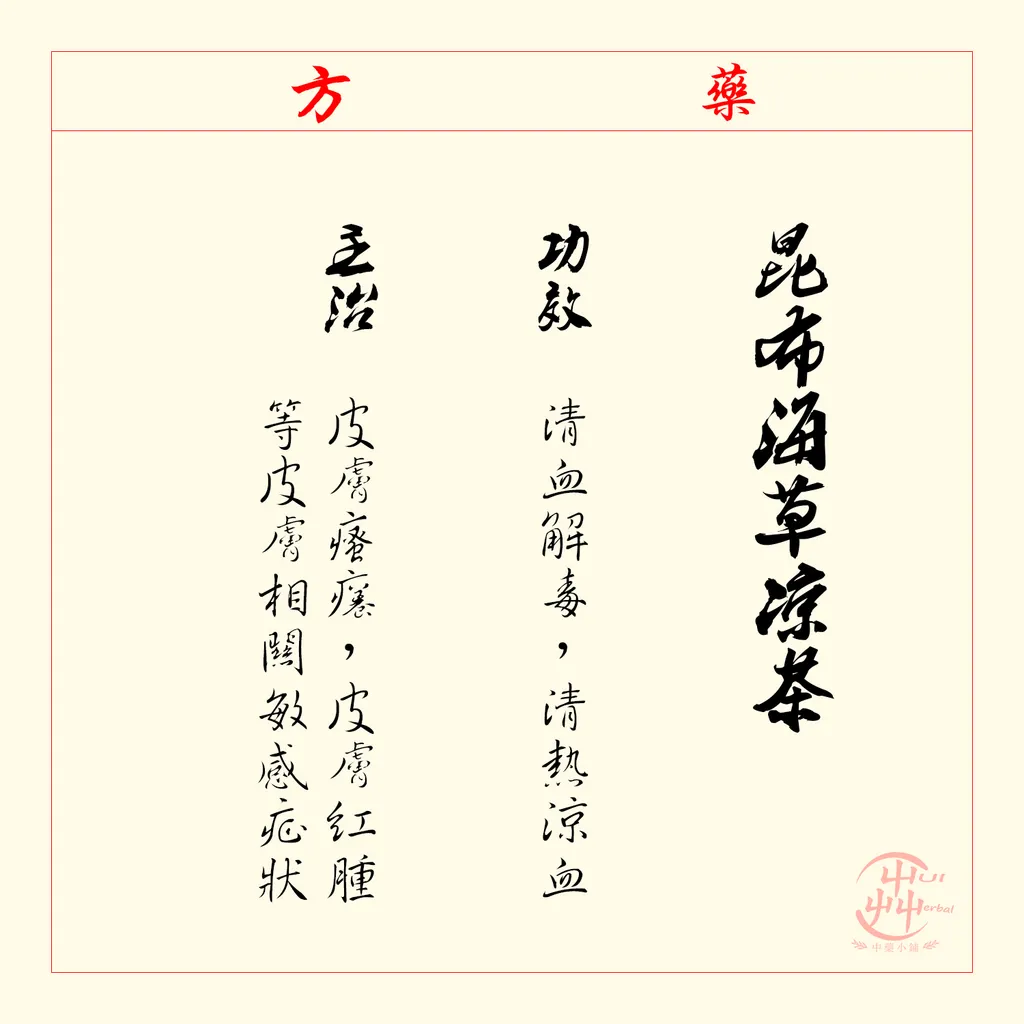 藥方
昆布海草涼茶
功效
清血解毒，清熱涼血
主治
皮膚瘙癢，皮膚紅腫
等皮膚相關敏感症狀
HUI
Herbal
中藥小舖